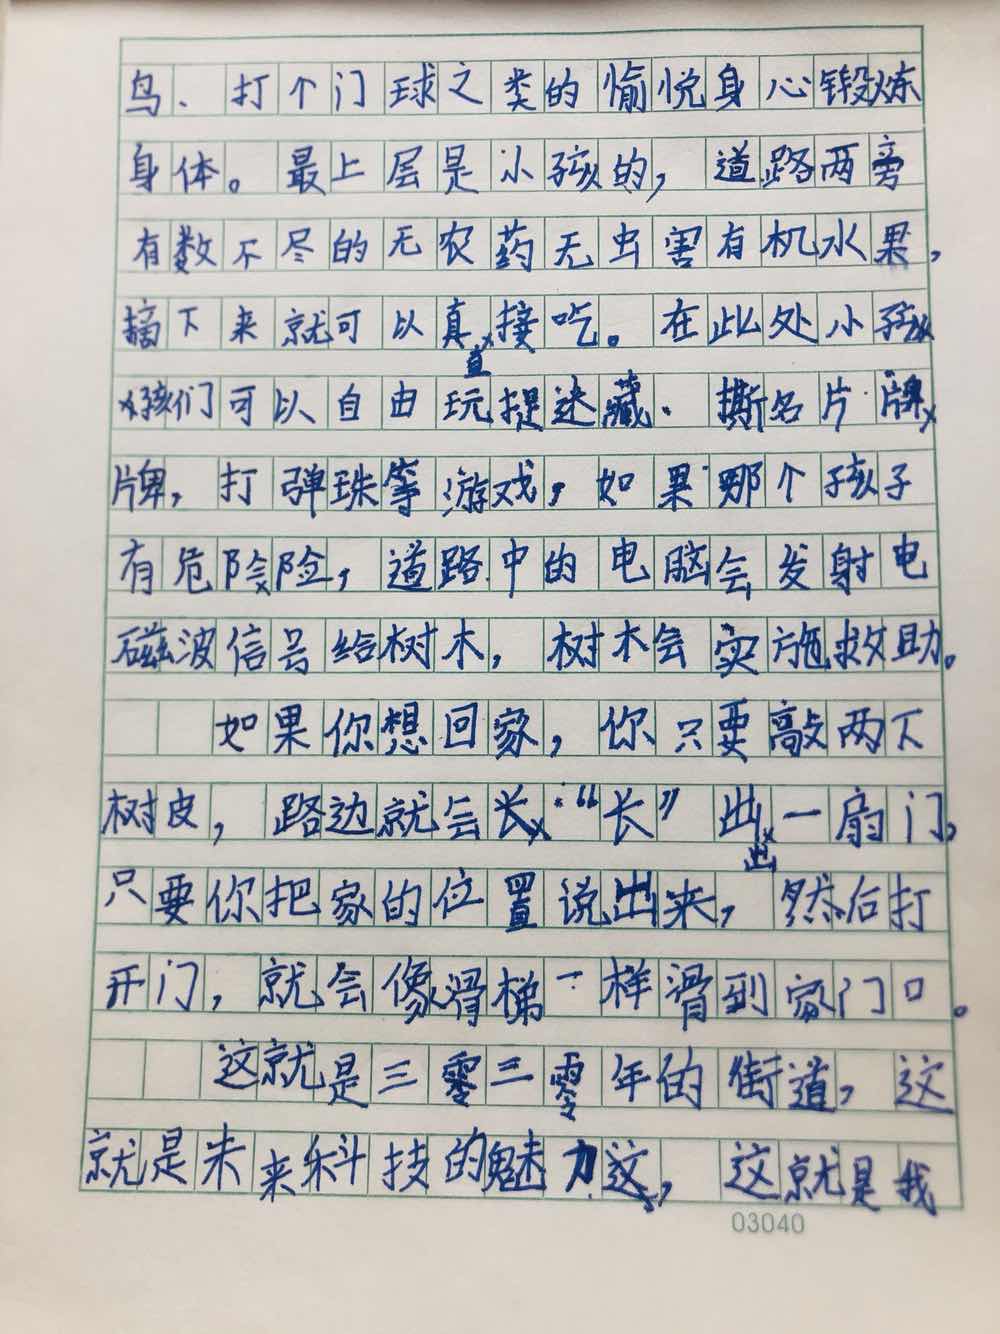 鸟、打个门球之类的愉悦身心锻炼
身体。最上层是小孩的，道路两旁
有数不尽的无农药无虫害有机水果，
摘下来就可以真接吃。在此处小孩
直
孩们可以自由玩捉迷藏、撕名片牌
牌，打弹珠等游戏，如果哪个孩子
有危险险，道路中的电脑会发射电
磁波信号给树木，树木会实施救助。
如果你想回家，你只要敲两下
树皮，路边就会长“长”出一扇门，
出
只要你把家的位置说出来，然后打
开门，就会像滑梯一样滑到家门口。
这就是三零三零年的街道，这
就是未来科技的魅力这，这就是我
03040